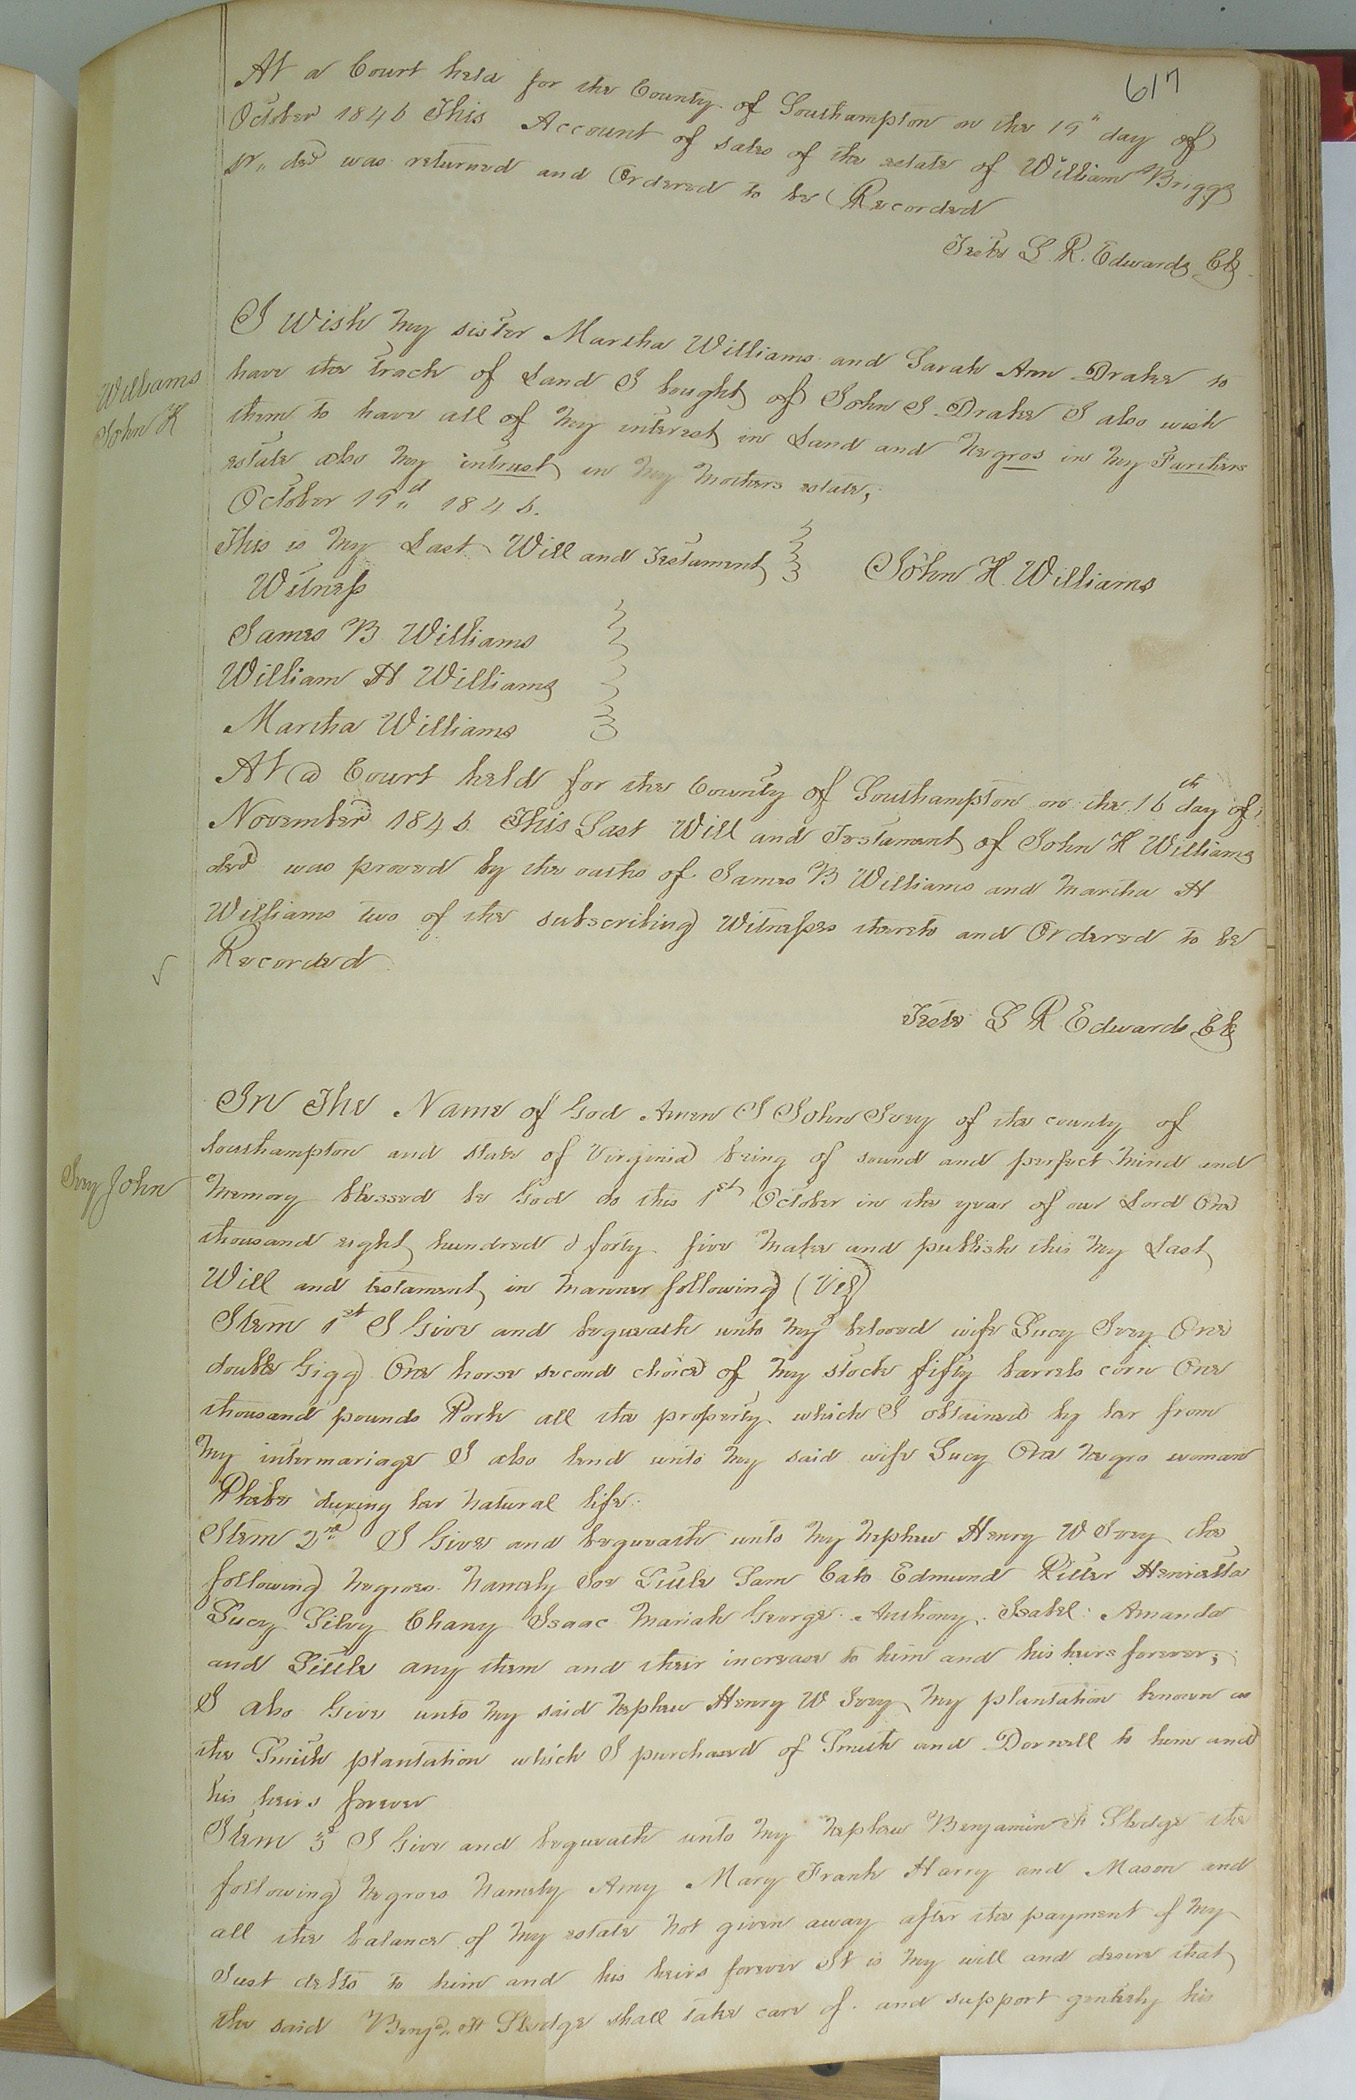 617
At a Court held for the County of Southampton on the 19th day of
October 1846 This Account of sales of the estate of William Briggs
sr,, decd was returned and Ordered to be Recorded
Teste L. R. Edwards Clk
Williams
John H
I wish my sister Martha Williams and Sarah Ann Drake to
have the track of Land I bought of John J Drake I also wish
them to have all of my interest in Land and negros in my Farthers
estate also my intrust in my mothers estate,
October 19th 1846.
This is my Last Will and Testament John H. Williams
Witness
James B Williams
William H Williams
Martha Williams
At a Court held for the County of Southampton on the 16th day of
November 1846. This Last Will and Testament of John H Williams
decd was proved by the oaths of James B Williams and Martha H
Williams two of the subscribing Witnesses thereto and Ordered to be
Recorded
Teste L R Edwards Clk
Ivey John
In The Name of God Amen I John Ivey of the county of
Southampton and state of Virginia being of sound and perfect mind and
memory blessed be God do this 1st October in the year of our Lord One
thousand eight hundred & forty five make and publish this my Last
Will and testament in manner following (Viz)
Item 1st I Give and bequeath unto my beloved wife Lucy Ivey One
double Gigg One horse second choice of my stock fifty barrels corn One
thousand pounds Pork all the property which I obtained by her from
my intermariage I also lend unto my said wife Lucy One negro woman
Phebe during her natural life.
Item 2nd I Give and bequeath unto my nephew Henry W Ivey the
following negroes namely Joe Little Sam Cato Edmund Ritter Henrietta
Lucy Silvy Chany Isaac Mariah George Anthony Isabel Amanda
and Little any them and their increase to him and his heirs forever,
I also Give unto my said nephew Henry W Ivey my plantation known as
the Smith plantation which I purchased of Smith and Dornell to him and
his heirs forever
Item 3d I Give and bequeath unto my nephew Benjamin F Sledge the
following negroes namely Amy Mary Frank Harry and Mason and
all the balance of my estate not given away after the payment of my
Just debts to him and his heirs forever It is my will and desire that
the said Benja. F Sledge shall take care of and support genteely his